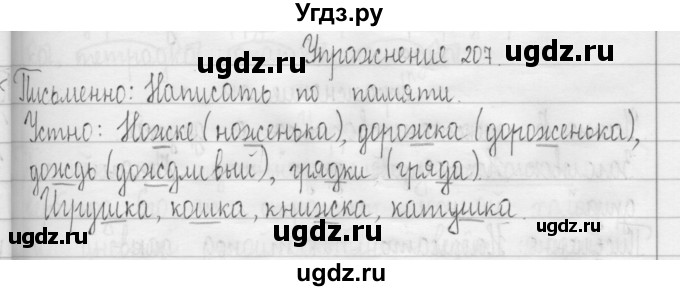 Угдз.ру
Упражнение 207.
Письменно: Написать по памяти.
Устно: Ножке (ноженька), дорожка (дороженька),
дождь (дождливый), грядки (гряда)
Игрушка, кошка, книжка, катушка.
ugdz.ru
ugdz.ru
ugdz.ru
ugdz.ru
ugdz.ru
ugdz.ru
ugdz.ru
ugdz.ru